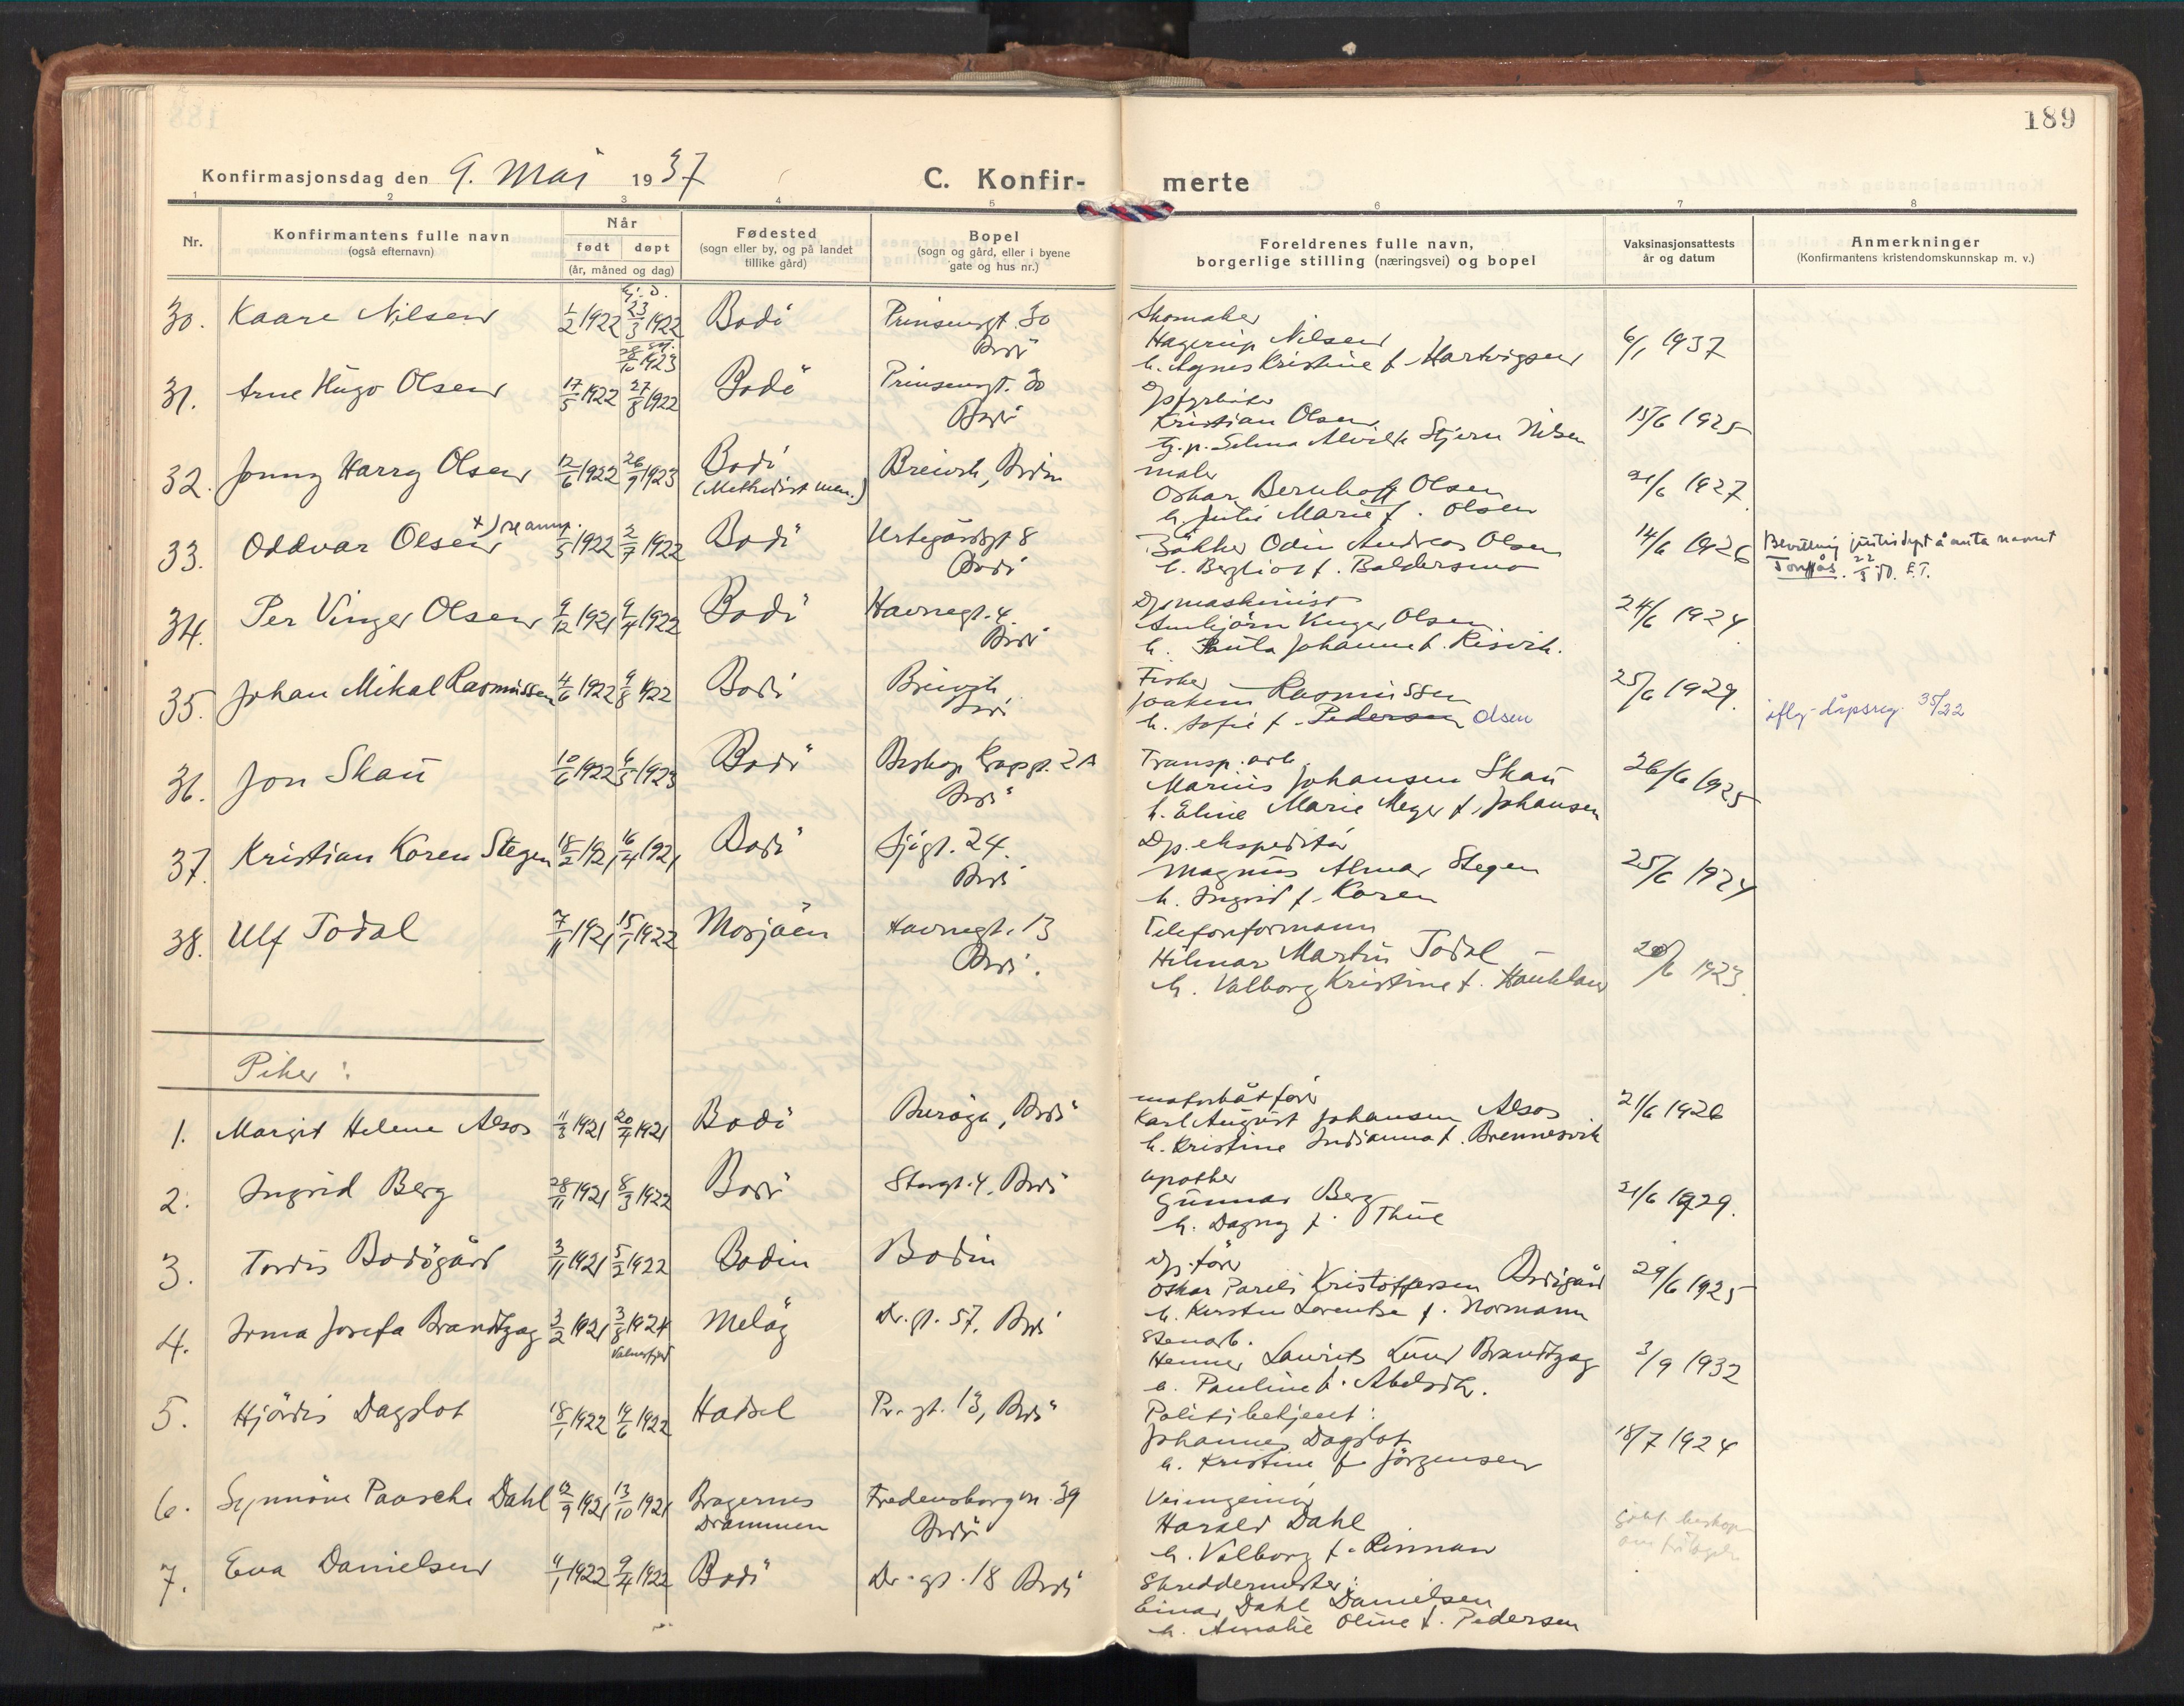 189
Konfirmasjonsdag den 9. Mai 1937
C. Konfir- merte
1 2 3 4 5 6 7 8
Nr.
Konfirmantens fulle navn
(også efternavn)
Når
født døpt
(år, måned og dag)
Fødested
(sogn eller by, og på landet
tillike gård)
Bopel
(sogn og gård, eller i byene
gate og hus nr.)
Foreldrenes fulle navn,
borgerlige stilling (næringsvei) og bopel
Vaksinasjonsattests
år og datum
Anmerkninger
(Konfirmantens kristendomskunnskap m. v.)
30. Kaare Nilsen 1/2 1922 23/3 1922 Bodö Prinsensgt. 30 Bodö
Skomaker
Hagerup Nilsen
h. Agnes Kristine f. Hartvigsen
6/1 1937
31. Arne Hugo Olsen 17/5 1922 27/8 1922 Bodö Prinsensgt. 30 Bodö
Kristian Olsen
Stjern Nilsen
15/6 1925
32. Jonny Harry Olsen 12/6 1922 26/9 1923 Bodö (Methodist men.) Breivik, Bodin
maler
Oskar Bernhoft Olsen
h. Julie Marie f. Olsen
21/6 1927
33. Oddvar Olsen x) se anm. 1/5 1922 2/7 1922 Bodö Urtegårdsgt 8 Bodö
Bökker Odin Andreas Olsen
h. Bergliot f. Baldersmo
14/6 1926
Bevilling justisdept å anta navnet
22/5 50. E.T.
34. Per Vinger Olsen 9/12 1921 9/4 1922 Bodö Havnegt. 4. Bodö
Dpmaskinist
Arnbjörn Vinger Olsen
h. Paula Johanne f. Risvik.
24/6 1924
35. Johan Mikal Rasmussen 4/6 1922 9/8 1922 Bodö Breivik, Bodö
Fisker
Joakim Rasmussen
h. Sofie f. Pedersen Olsen
25/6 1929.
iflg. dåpsreg. 35/22
36. Jon Skau 10/6 1922 6/5 1923 Bodö Biskop Krogsgt. 2A Bodö
Transp. arb.
Marius Johansen Skau
h. Eline Marie Meyer f. Johansen
26/6 1925
37. Kristian Koren Stegen 18/2 1921 16/4 1921 Bodö Sjögt. 24. Bodö
Dp. ekspeditör
Magnus Almar Stegen
h. Ingrid f. Koren
25/6 1924
38. Ulf Todal 7/11 1921 15/1 1922 Mosjöen Havnegt. 13 Bodö.
Telefonformann
Hilmar Martin Todal
h. Valborg Kristine f. Hauklan
1923
Piker:
1. Margit Helene Alsos 11/3 1921 20/4 1921 Bodö Buröya, Bodö
motorbåtförer
Karl August Johansen Alsos
h. Kristine Indianna f. Brennesvik
21/6 1926
2. Ingrid Berg 28/11 1921 8/3 1922 Bodö Storgt. 4, Bodö
apotker
Gunnar Berg
h. Dagny f. Thue
21/6 1929.
3. Tordis Bodögård 3/11 1921 5/2 1922 Bodin Bodin
dp. förer
Oskar Pareli Kristoffersen Bodögård
h. Kirsten Lorentse f. Normann
29/6 1925
4. Irma Josefa Brandtzæg 3/2 1921 3/8 1924 Valnesfjord Melöy Dr. gt. 57, Bodö
Stenarb.
Henner Laurits Lund Brandtzæg
h. Pauline f. Abelsdtr.
3/9 1932
5. Hjördis Dagslot 18/1 1922 14/6 1922 Hadsel Pr. gt. 13, Bodö
Politibetjent:
Johannes Dagslot
h. Kristine f. Jörgensen
18/7 1924
6. Synnöve Paasche Dahl 12/9 1921 13/10 1921 Bragernes Drammen Fredensborgvn. 39 Bodö
Veiingeniör
Harald Dahl
h. Valborg f. Rinnan
7. Eva Danielsen 4/1 1922 9/4 1922 Bodö Dr. gt. 18 Bodö
Skreddermester:
Einar Dahl Danielsen
h. Amalie Oline f. Pedersen